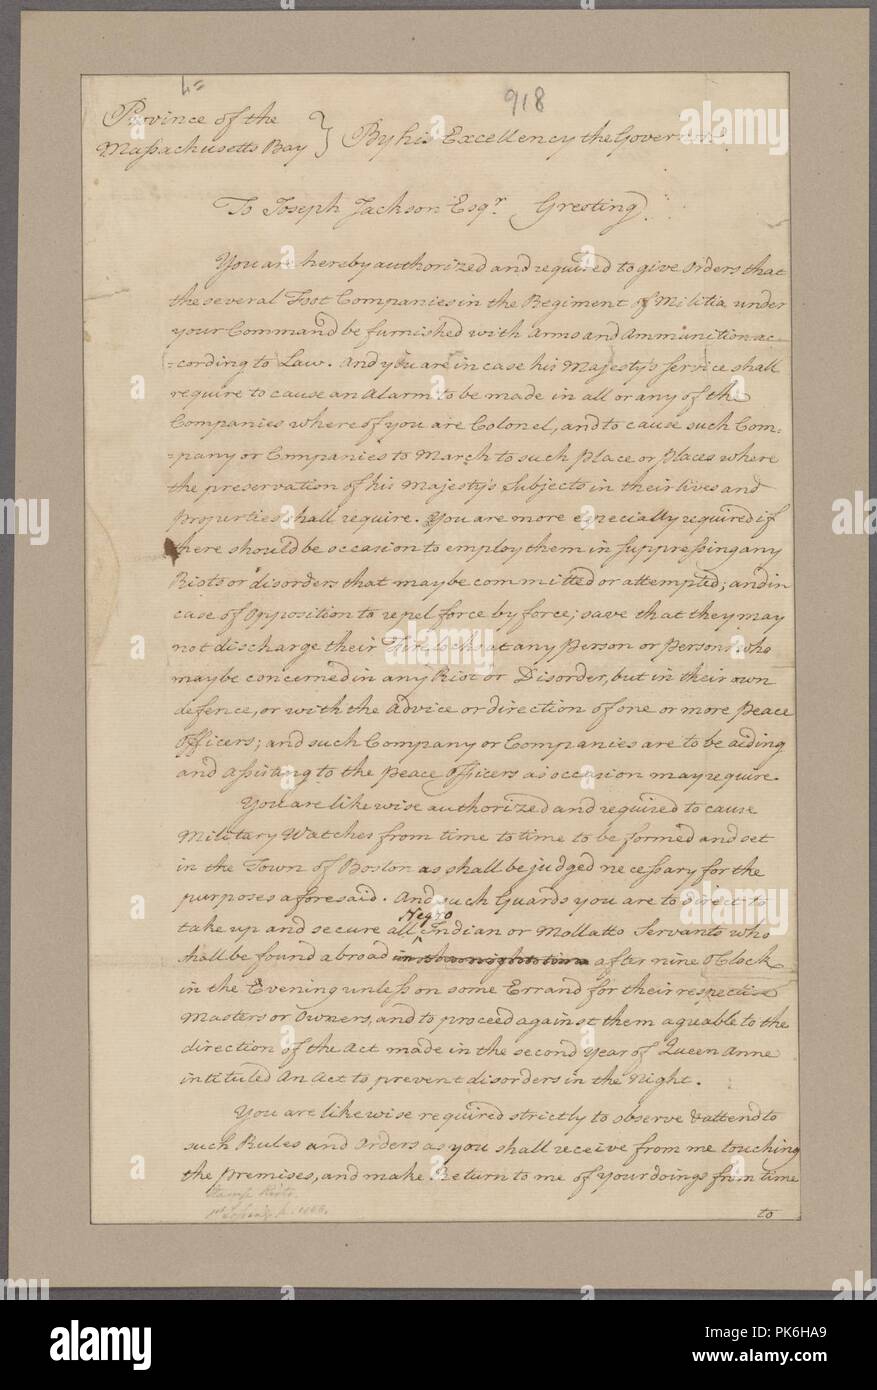 4=
918
Province of the
Massachusetts Bay } By his Excellency the Governor.
To Joseph Jackson Esqr. Greeting.
You are hereby authorized and required to give Orders that
the several Foot Companies in the Regiment of Militia under
your Command be furnished with Arms and Ammunition ac=
=cording to Law. And you are in case his Majesty's Service shall
require to cause an Alarm to be made in all or any of the
Companies where of you are Colonel, and to cause such Com=
=pany or Companies to March to such Place or Places where
the preservation of his Majesty's Subjects in their lives and
properties shall require. You are more especially required if
there should be occasion to employ them in suppressing any
Riots or disorders that may be committed or attempted; and in
case of Opposition to repel force by force; save that they may
not discharge their Fire locks at any Person or Persons who
may be concerned in any Riot or Disorder, but in their own
defence, or with the Advice or direction of one or more Peace
Officers; and such Company or Companies are to be aiding
and assisting to the Peace Officers as occasion may require.
You are likewise authorized and required to cause
Military Watches from time to time to be formed and set
in the Town of Boston as shall be judged necessary for the
purposes aforesaid. And such Guards you are to direct to
Negro
take up and secure all ^ Indian or Mollatto Servants who
shall be found abroad after nine O Clock
in the Evening unless on some Errand for their respective
Masters or Owners, and to proceed against them aguable to the
direction of the Act made in the second Year of Queen Anne
intituled An Act to prevent disorders in the Night.
You are likewise required strictly to observe & attend to
such Rules and Orders as you shall receive from me touching
the premises, and make Return to me of your doings from time
to
Stamp Riots.
alamy
PK6HA9
www.alamy.com